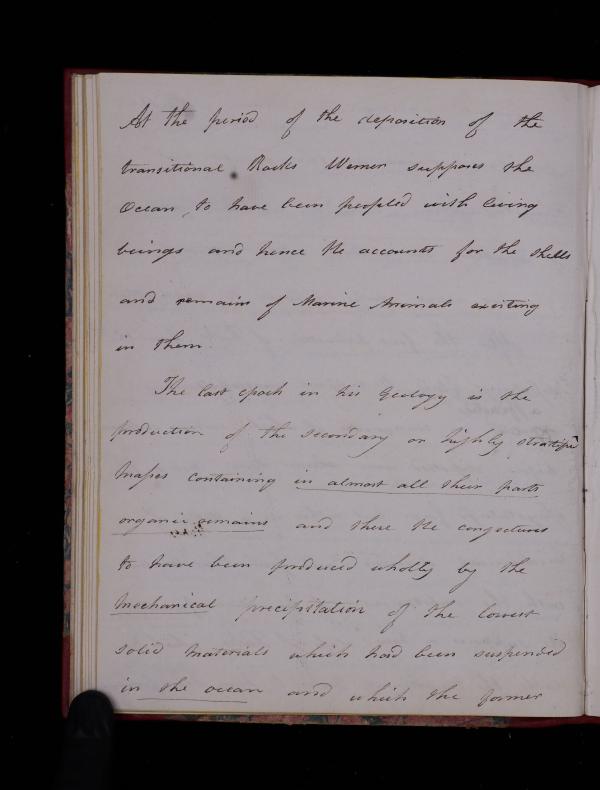 At the period of the deposition of the
transitional Rocks Werner supposes the
Ocean, to have been peopled with living
beings and hence He accounts for the shells
and remains of Marine Animals existing
in them.
The last epoch in his Geology is the
production of the secondary or highly stratified
Masses containing in almost all their parts
organic remains and these He conjectures
to have been produced wholly by the
Mechanical precipitation of the lowest
solid Materials which had been suspended
in the ocean and which the former